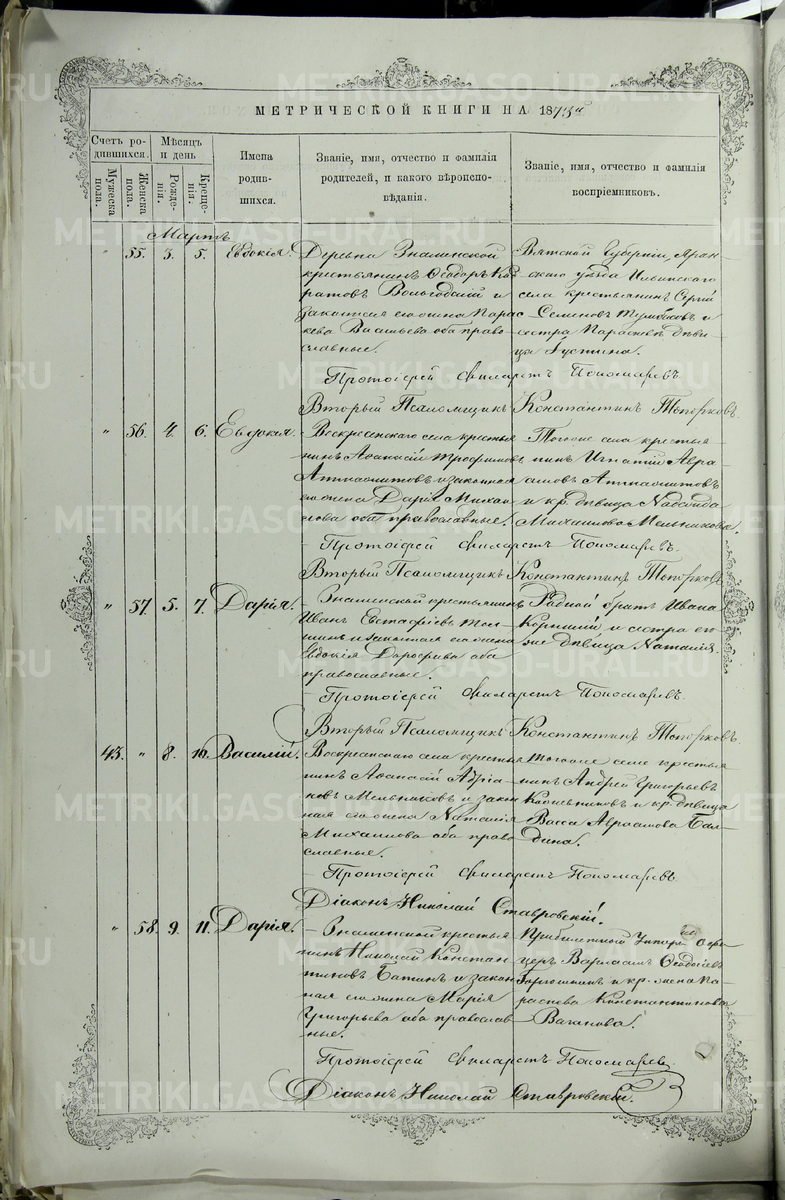 МЕТРИЧЕСКОЙ КНИГИ НА 1873й
Счетъ родившихся.
Мужеска пола.
Женска пола.
Мѣсяцъ и день
Рожденія.
Крещенія.
Имена родившихся.
Званіе, имя, отчество и фамилія родителей, и какого вѣроисповѣданія.
Званіе, имя, отчество и фамилія воспріемниковъ.
Мартъ
" 55. 3. 5. Евдокія.
Деревни Знаменской
крестьянинъ Ѳеодоръ
Вологодскій и
законная его жена Парас-
кева Васильева оба право-
славные.
Вятской Губерніи, Яран-
скаго уѣзда Ильинскаго
села крестьянинъ Сергій
Семеновъ и
сестра Параскевы дѣви-
ца Устина.
Протоіерей Филаретъ Пономаревъ
Вторый Псаломщикъ Константинъ Топорковъ
" 56. 4. 6. Евдокія.
Воскресенскаго села крестья-
нинъ Аѳанасій Трофимовъ
и законная
его жена Дарія Михаи-
лова оба православные.
Тогоже села крестья-
нинъ Игнатій Авра-
амовъ
и кр. дѣвица Надежда
Михайлова Мельникова.
Протоіерей Филаретъ Пономаревъ.
Вторый Псаломщикъ Константинъ Топорковъ
" 57. 5. 7. Дарія.
Знаменской крестьянинъ
Иванъ Евстафіевъ
и законная его жена
Евдокія Дороѳеева оба
православные.
Родной братъ Ивана
Корнилій и сестра его
же дѣвица Наталія.
Протоіерей Филаретъ Пономаревъ.
Вторый Псаломщикъ Константинъ Топорковъ
43. " 8. 10. Василій.
Воскресенскаго села крестья-
нинъ Аѳанасій Адріа-
новъ Мельниковъ и закон-
ная его жена Наталія
Михаилова оба право-
славные.
Тогоже села крестья-
нинъ Андрей Григорьевъ
и кр. дѣвица
Васса Авраамова Бал-
дина.
Протоіерей Филаретъ Пономаревъ
Діаконъ Николай Ставровскій.
" 58. 9. 11. Дарія.
Знаменской крестья-
нинъ Николай Констан-
тиновъ Батинъ и закон-
ная его жена Марія
Григорьева оба православ-
ные.
Унтеръ Офи-
церъ Варлаамъ Ѳеодоровъ
и кр. жена Па-
раскева Константинова
Ваганова.
Протоіерей Филаретъ Пономаревъ
Діаконъ Николай Ставровскій.
METRIKI.GASO-URAL.RU